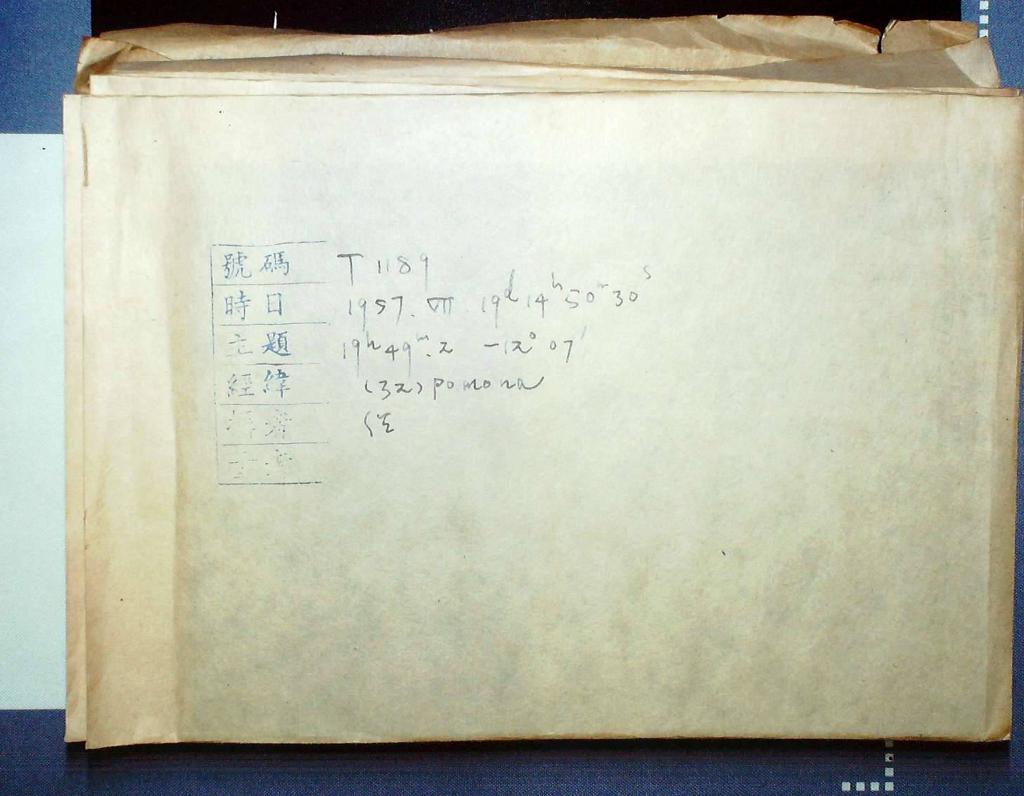 號碼 T 1189
時日 1957. VII. 19ᵈ 14ʰ 50ᵐ 30ˢ
主題 19ʰ 49ᵐ.2 -12° 07'
經緯 (32) pomona